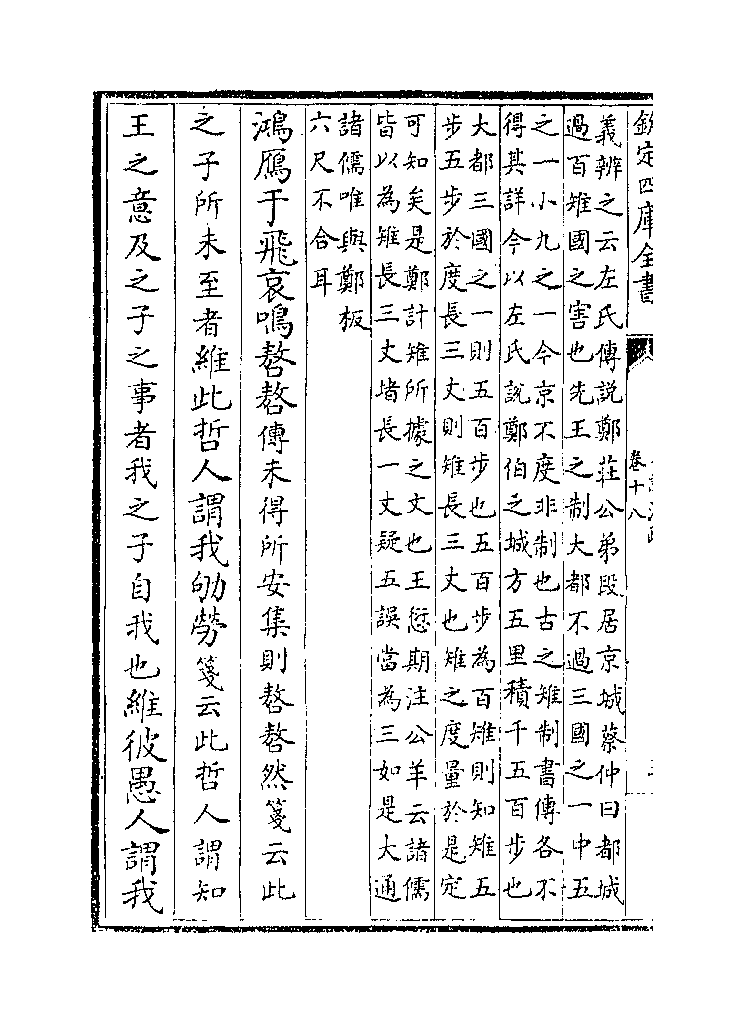 欽定四庫全書
卷十八
義辨之云左氏傳說鄭莊公弟段居京城蔡仲曰都城
過百雉國之害也先王之制大都不過三國之一中五
之一小九之一今京不度非制也古之雉制書傳各不
得其詳今以左氏說鄭伯之城方五里積千五百步也
大都三國之一則五百步也五百步為百雉則知雉五
步五步於度長三丈則雉長三丈也雉之度量於是定
可知矣是鄭計雉所據之文也王愆期注公羊云諸儒
皆以為雉長三丈堵長一丈疑五誤當為三如是大通
諸儒唯與鄭板
六尺不合耳
鴻鴈于飛哀鳴嗸嗸傳未得所安集則嗸嗸然箋云此
之子所未至者維此哲人謂我劬勞箋云此哲人謂知
王之意及之子之事者我之子自我也維彼愚人謂我